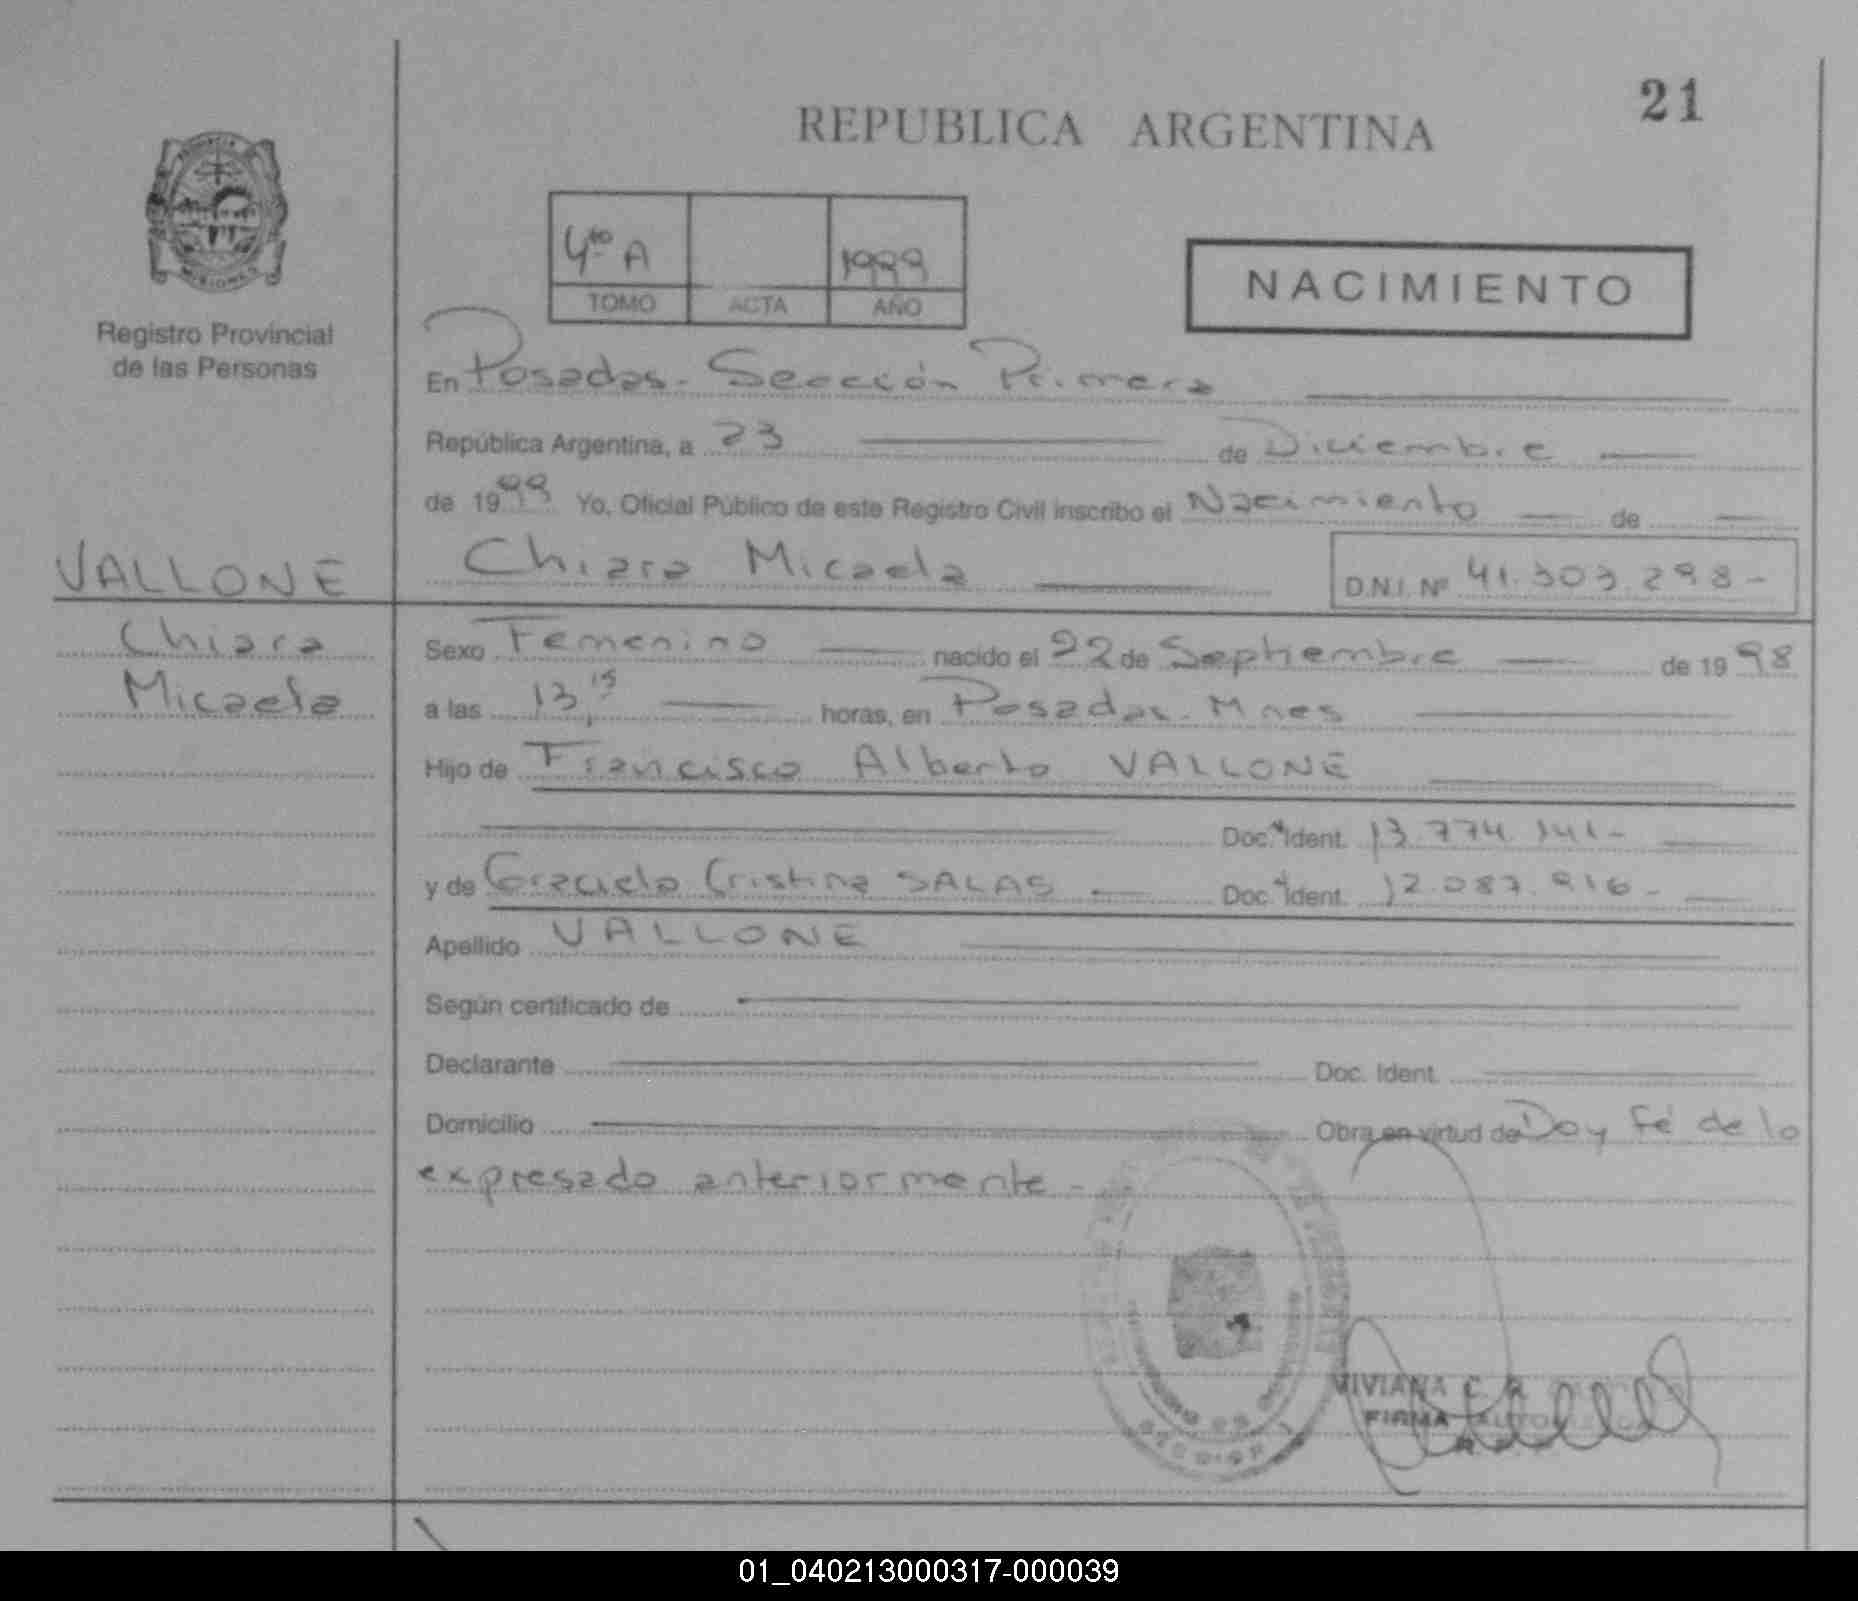 21
REPUBLICA ARGENTINA
MISIONES
Registro Provincial
de las Personas
4to A 1999
TOMO ACTA AÑO
NACIMIENTO
En Posadas - Sección Primera
República Argentina, a 23 de Diciembre
de 1999 Yo, Oficial Público de este Registro Civil inscribo el Nacimiento de
VALLONE Chiara Micaela D.N.I. Nº 41.303.298-
Chiara Sexo Femenino nacido el 22 de Septiembre de 1998
Micaela a las 13,15 horas, en Posadas - Mnes
Hijo de Francisco Alberto VALLONE
Doc. Ident. 13.774.141-
y de Graciela Cristina SALAS Doc. Ident. 12.087.916-
Apellido VALLONE
Según certificado de
Declarante Doc. Ident.
Domicilio Obra en virtud de Doy fé de lo
expresado anteriormente -
VIVIANA C.
FIRMA
01_040213000317-000039